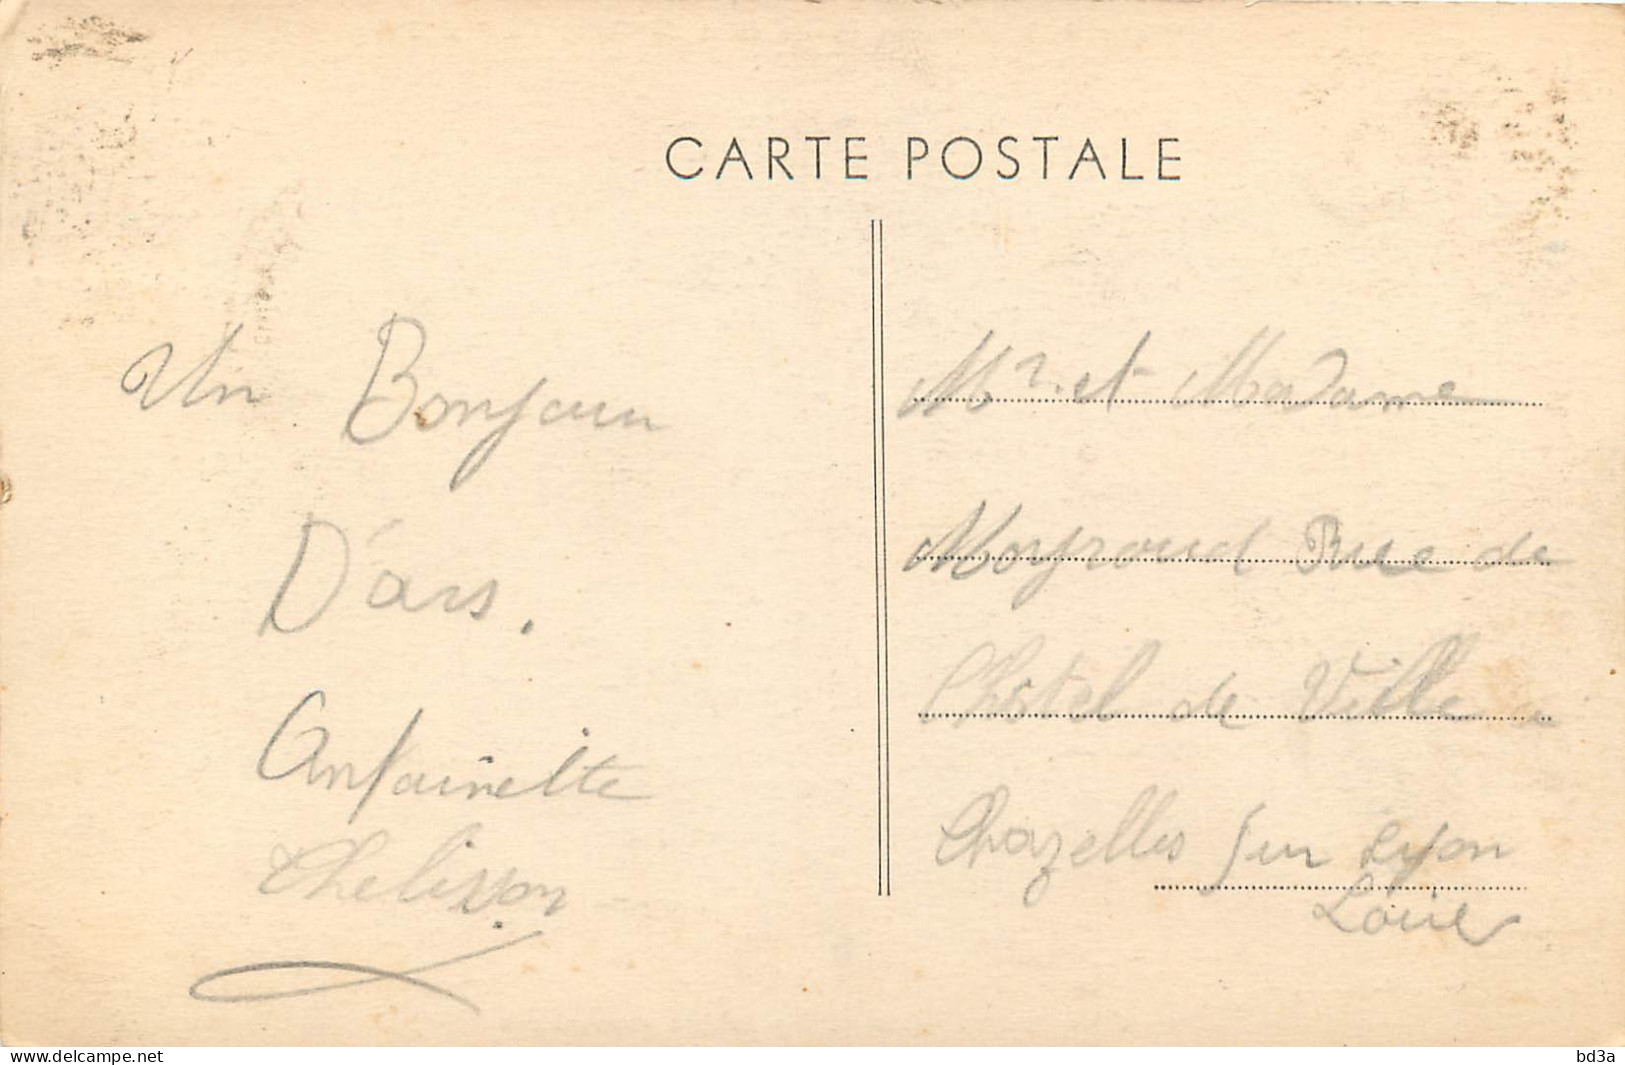 CARTE POSTALE
Un Bonjour
D'ars.
Antoinette
Mr. et Madame
Rue de
l'hôtel de Ville
Chazelles sur Lyon
Loire
www.delcampe.net
bd3a